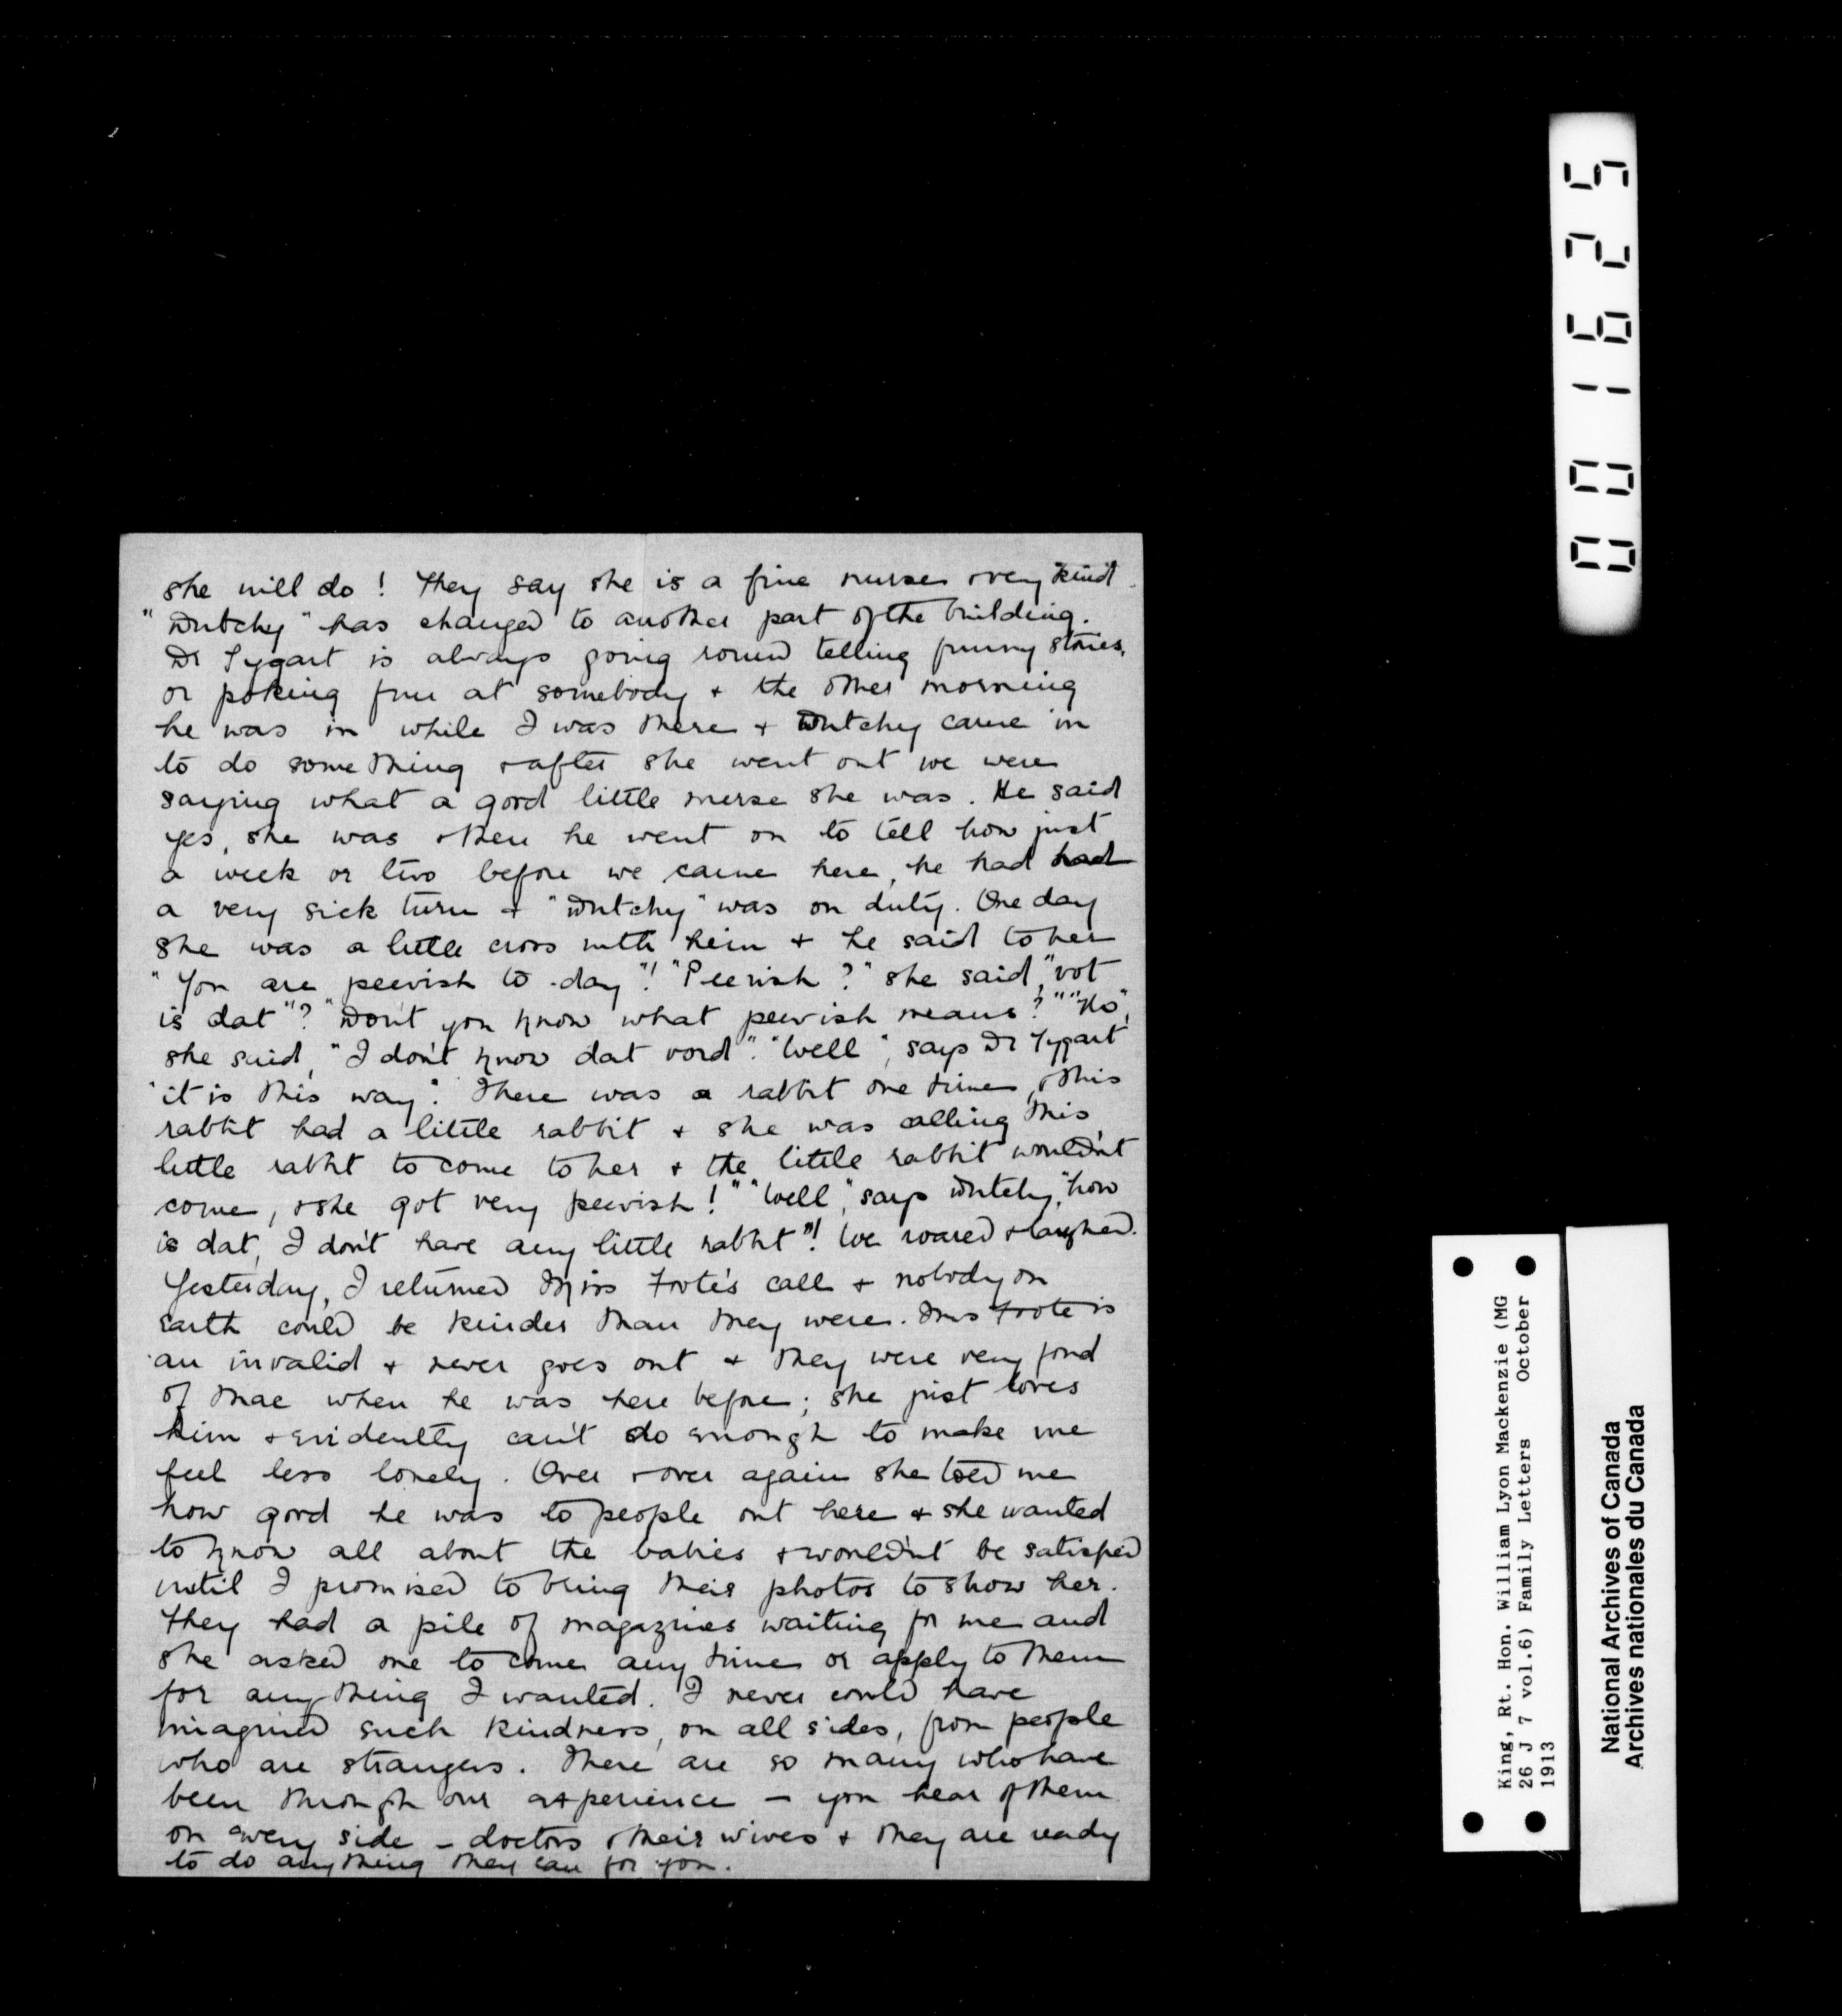 she will do! They say she is a fine nurse & very kind.
"Dutchy" has changed to another part of the building.
Dr Tygart is always going round telling funny stories,
or poking fun at somebody & the other morning
he was in while I was there & Dutchy came in
to do something & after she went out we were
saying what a good little nurse she was. He said
yes, she was & then he went on to tell how just
a week or two before we came here, he had had
a very sick turn & "Dutchy" was on duty. One day
she was a little cross with him & he said to her
"You are peevish to-day"! "Peevish?" she said, "vot
is dat"? "Don't you know what peevish means?" "No",
she said, "I don't know dat vord". "Well", says Dr Tygart
"it is this way". There was a rabbit one time, & this
rabbit had a little rabbit & she was calling this
little rabbit to come to her & the little rabbit wouldn't
come, & she got very peevish!" "Well," says Dutchy, "how
is dat, I don't have any little rabbit"! We roared & laughed.
Yesterday, I returned Miss Foote's call & nobody on
earth could be kinder than they were. Mrs Foote is
an invalid & never goes out & they were very fond
of Mac when he was here before; she just loves
him & evidently can't do enough to make me
feel less lonely. Over & over again she told me
how good he was to people out here & she wanted
to know all about the babies & wouldn't be satisfied
until I promised to bring their photos to show her.
They had a pile of magazines waiting for me and
she asked me to come any time or apply to them
for anything I wanted. I never could have
imagined such kindness, on all sides, from people
who are strangers. There are so many who have
been through our experience - you hear of them
on every side - doctors & their wives & they are ready
to do anything they can for you.
001625
King, Rt. Hon. William Lyon Mackenzie (MG
26 J 7 vol.6) Family Letters October
1913
National Archives of Canada
Archives nationales du Canada